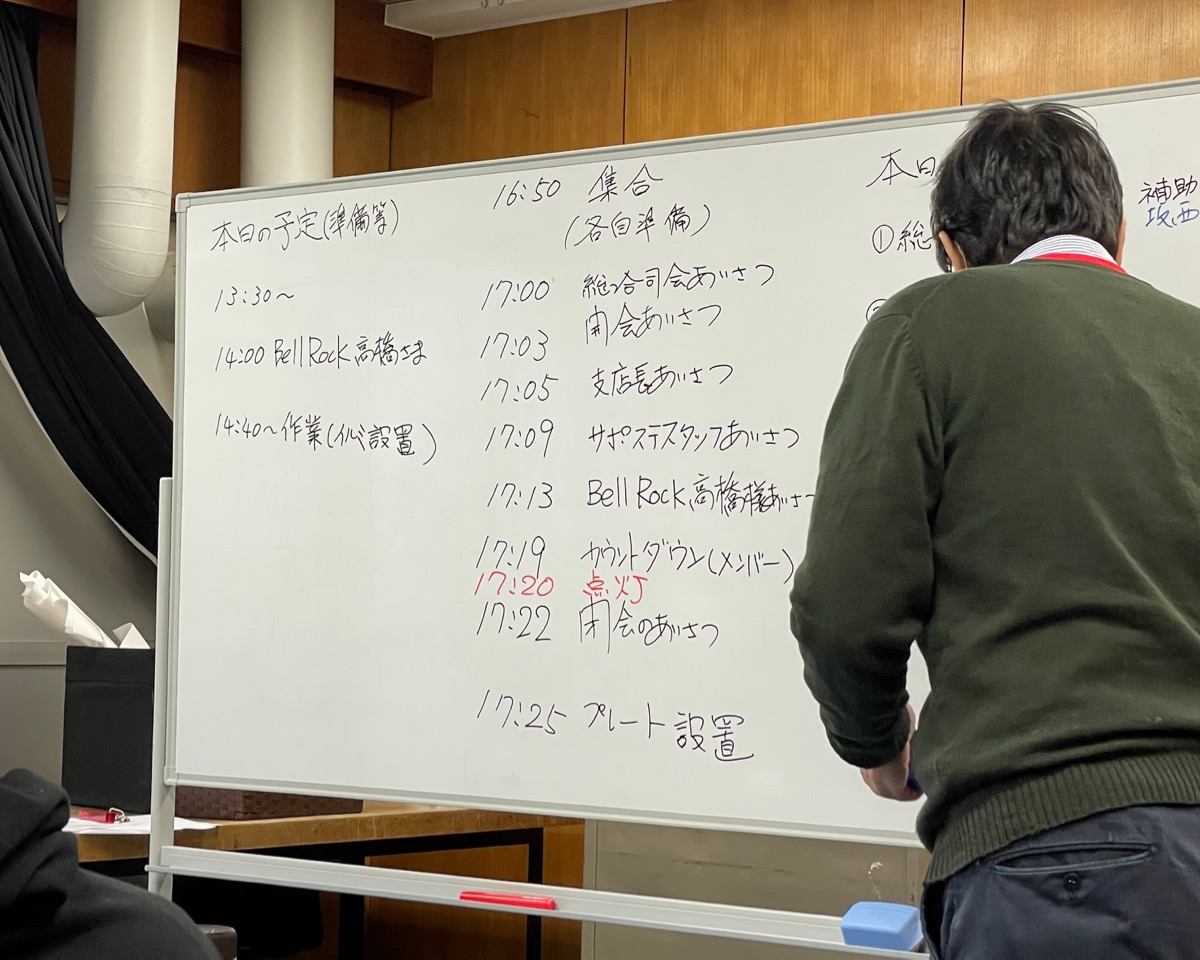 本日の予定(準備等)
13:30~
14:00 Bell Rock 高橋さま
14:40~作業(イルミ設置)
16:50 集合
(各自準備)
17:00 総合司会あいさつ
17:03 開会あいさつ
17:05 支店長あいさつ
17:09 サポステスタッフあいさつ
17:13 Bell Rock 高橋様あいさつ
17:19 カウントダウン(メンバー)
17:20 点灯
17:22 閉会のあいさつ
17:25 プレート設置
本日
①総
補助